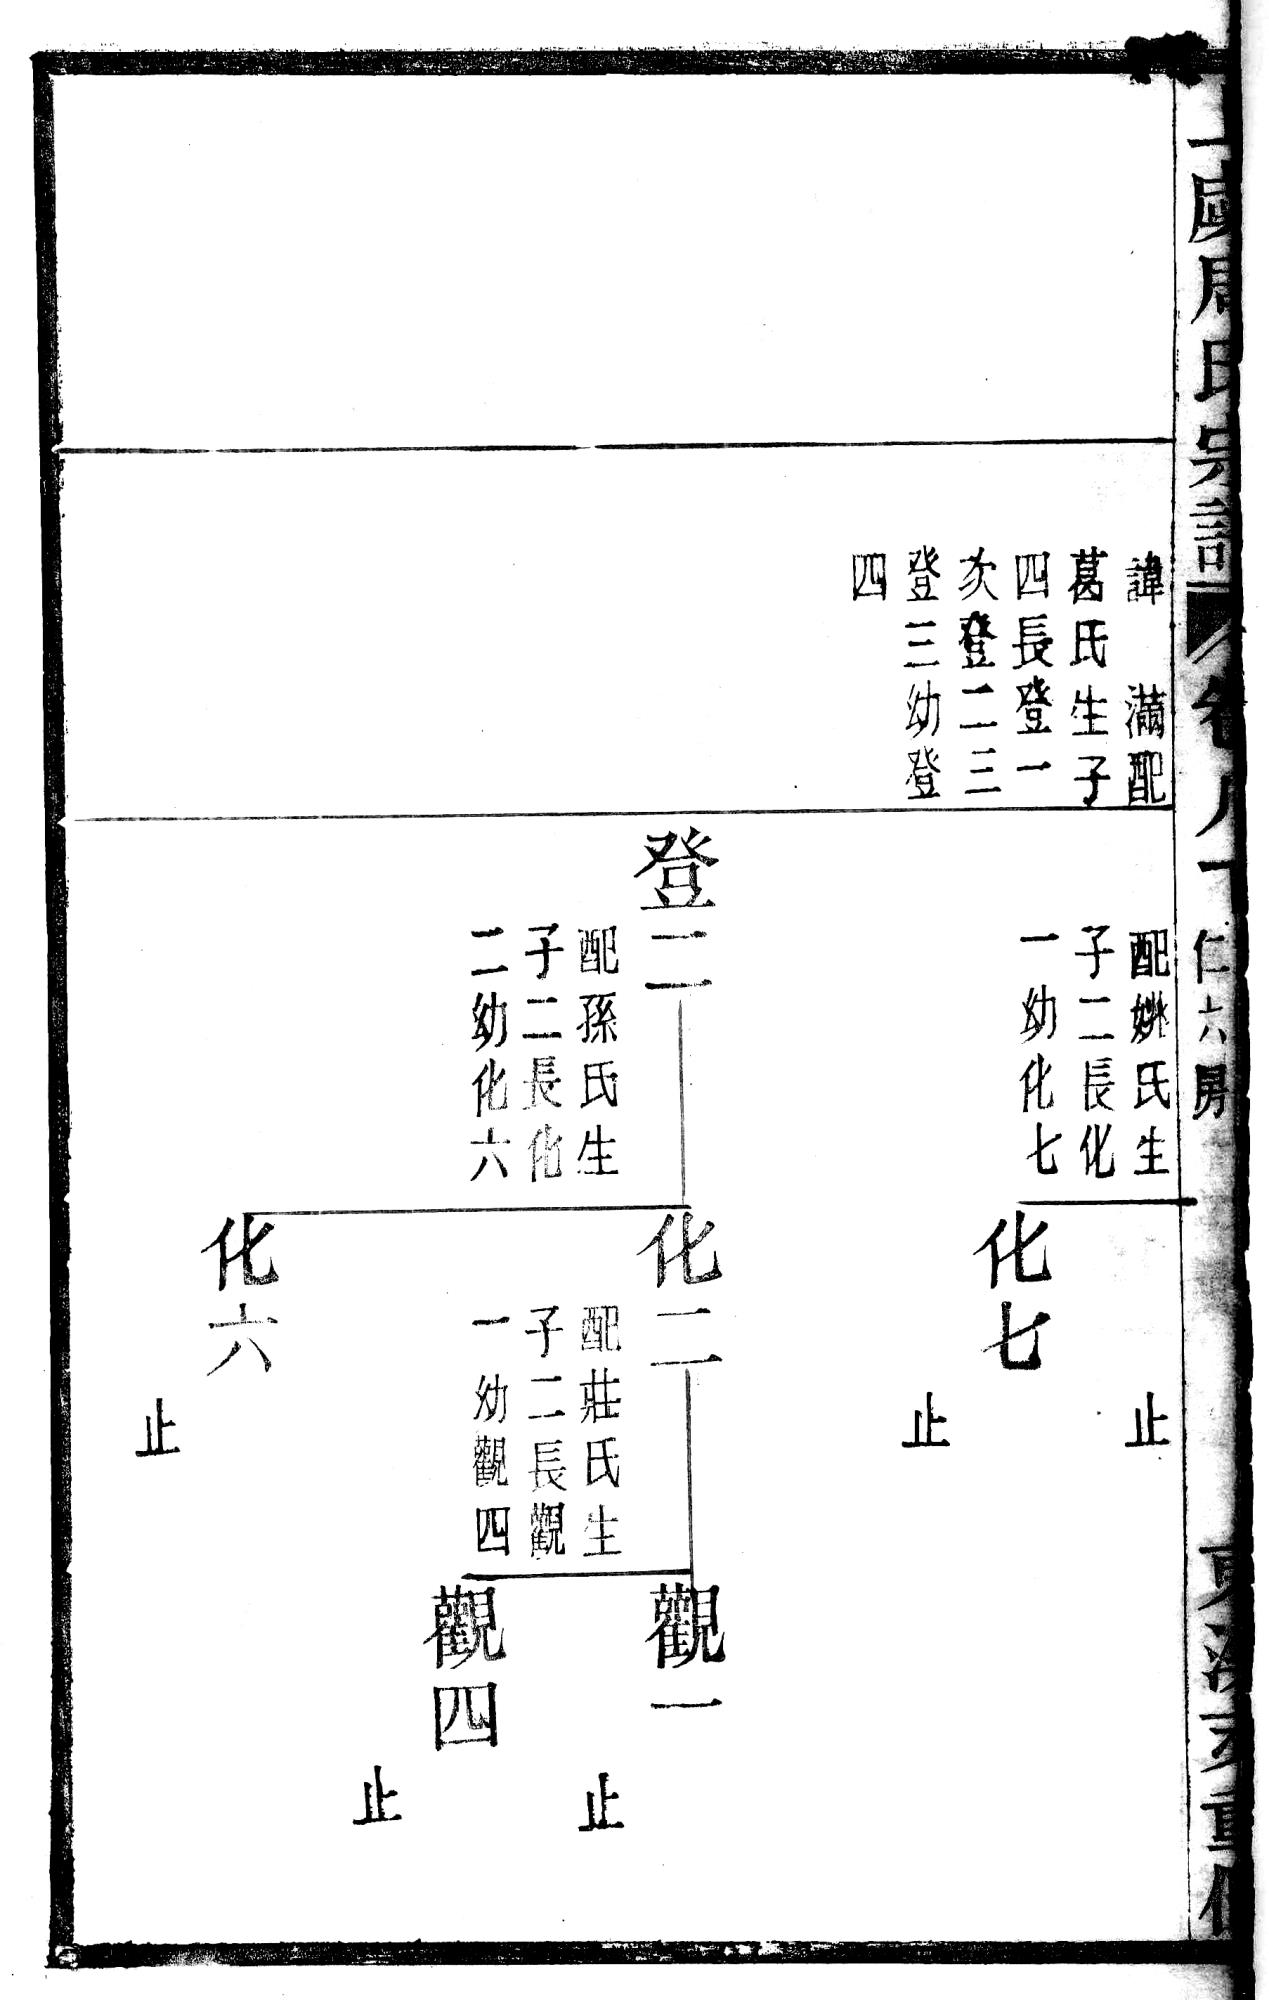 虞周氏宗譜
卷
仁六房
重修
諱　滿配
葛氏生子
四長登一
次登二三
登三幼登
四
配姚氏生
子二長化
一幼化七
登二
配孫氏生
子二長化
二幼化六
止
化七
止
化二
配莊氏生
子二長觀
一幼觀四
化六
止
觀一
止
觀四
止